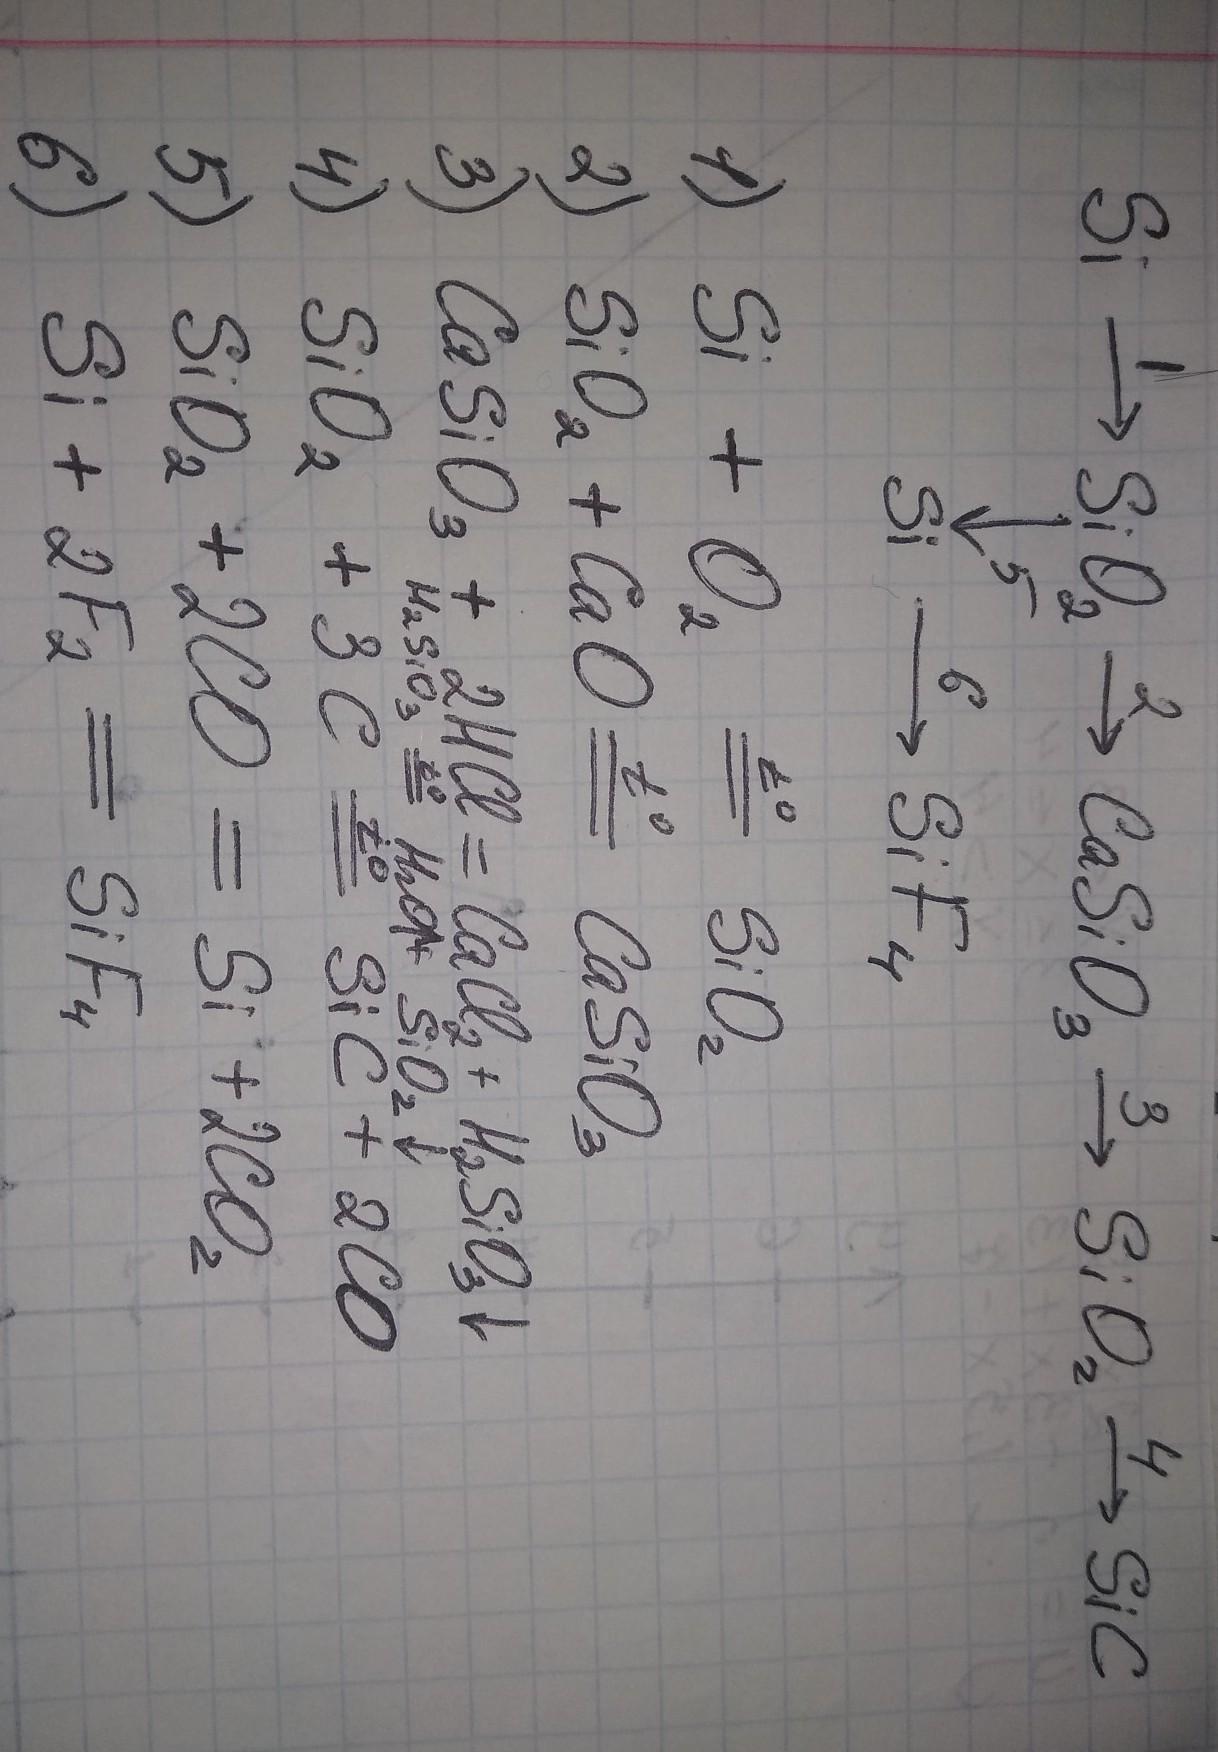 Si 1→ SiO2 2→ CaSiO3 3→ SiO2 4→ SiC
↓5
Si 6→ SiF4
1) Si + O2 t°= SiO2
2) SiO2 + CaO t°= CaSiO3
3) CaSiO3 + 2HCl = CaCl2 + H2SiO3↓
H2SiO3 t°= H2O + SiO2↓
4) SiO2 + 3C t°= SiC + 2CO
5) SiO2 + 2CO = Si + 2CO2
6) Si + 2F2 = SiF4